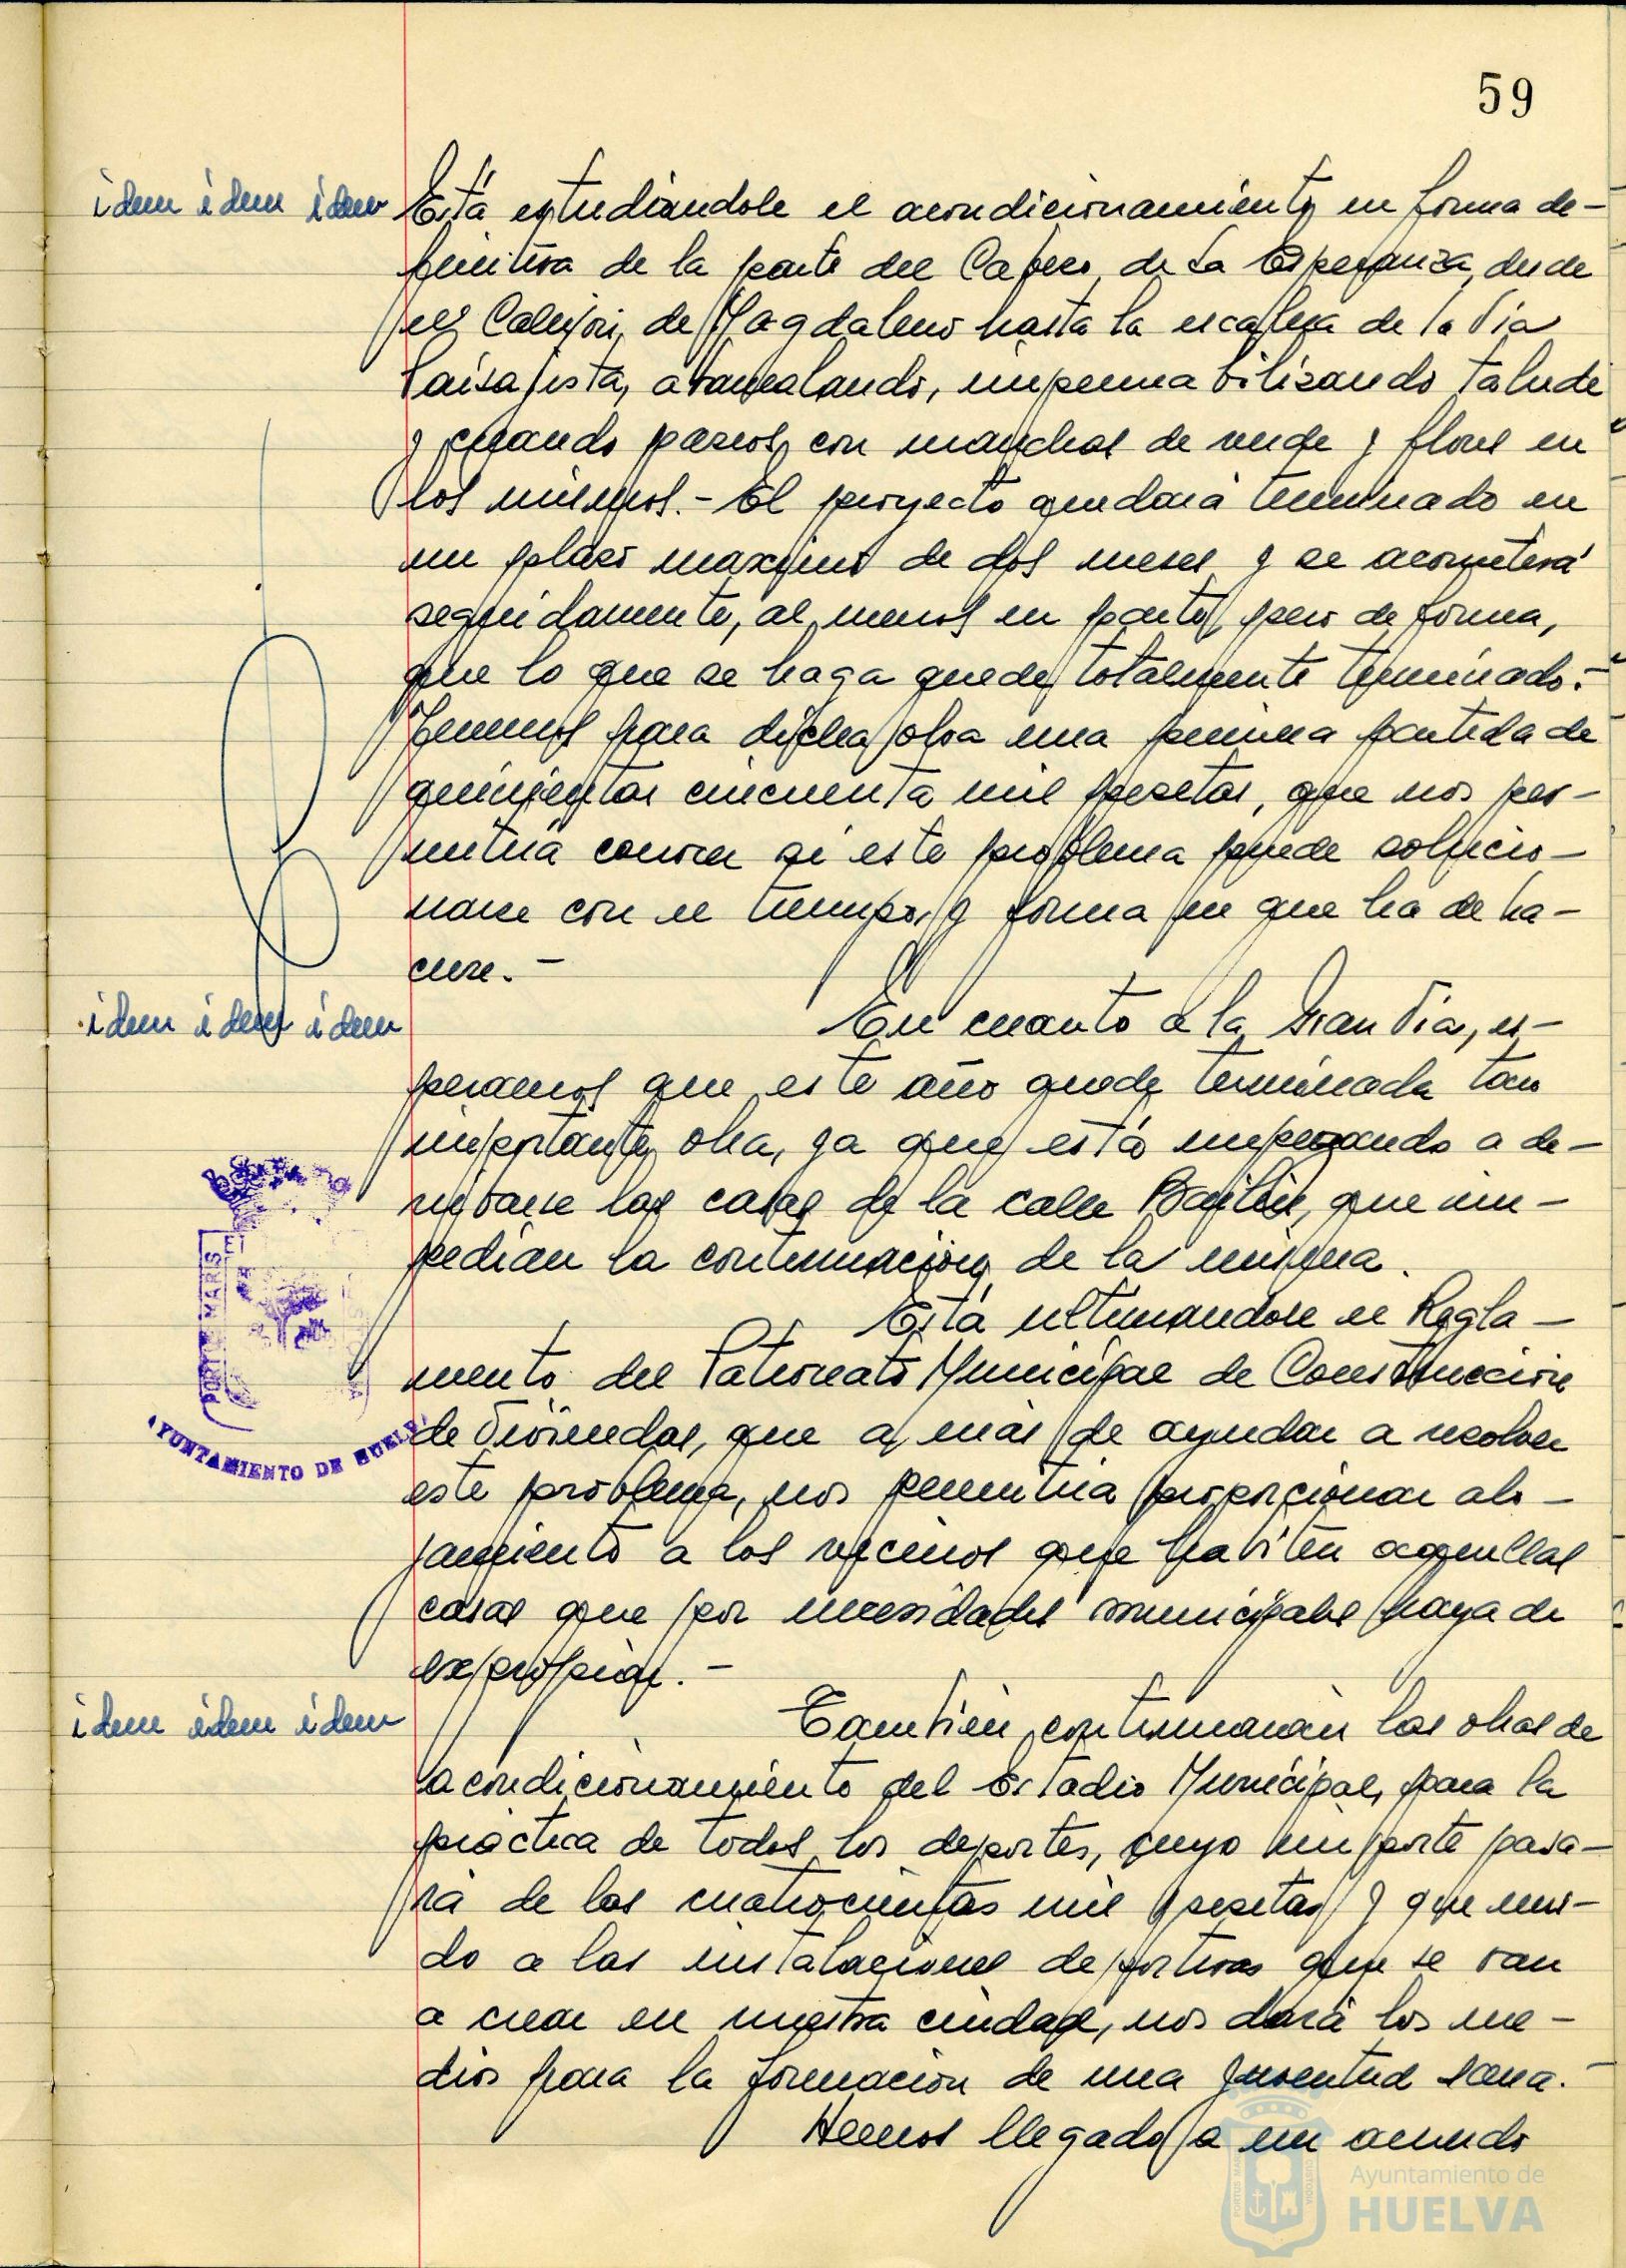 59
idem idem idem
Está estudiándole el acondicionamiento en forma de-
finitiva de la parte del Cabezo de La Esperanza, desde
el Callejón de Magdaleno hasta la escalera de la Vía
Paisajista, abancalando, impermeabilizando talude
y creando paseos con manchas de verde y flores en
los mismos.- El proyecto quedará terminado en
un plazo maximo de dos meses y se acometerá
seguidamente, al menos en parte, pero de forma,
que lo que se haga quede totalmente terminado.-
Tenemos para dicha obra una primera partida de
quinientas cincuenta mil pesetas, que nos per-
mitirá conocer si este problema puede solucio-
narse con el tiempo y forma en que ha de ha-
cerse.-
idem idem idem
En cuanto a la Gran Vía, es-
peramos que este año quede terminada tan
importante obra, ya que está empezando a de-
rribarse las casas de la calle Bailén, que im-
pedían la continuación de la misma.
Está ultimandose el Regla-
mento del Patronato Municipal de Construccion
de Viviendas, que a más de ayudar a resolver
este problema, nos permitiria proporcionar alo-
jamiento a los vecinos que habiten aquellas
casas que por necesidades municipales haya de
expropiar.-
idem idem idem
También continuarán las obras de
acondicionamiento del Estadio Municipal, para la
práctica de todos los deportes, cuyo importe pasa-
rá de las cuatrocientas mil pesetas y que uni-
do a las instalaciones deportivas que se van
a crear en nuestra ciudad, nos dará los me-
dios para la formacion de una juventud sana.-
Hemos llegado a un acuerdo
PORTUS MARIS
AYUNTAMIENTO DE HUELVA
Ayuntamiento de
HUELVA